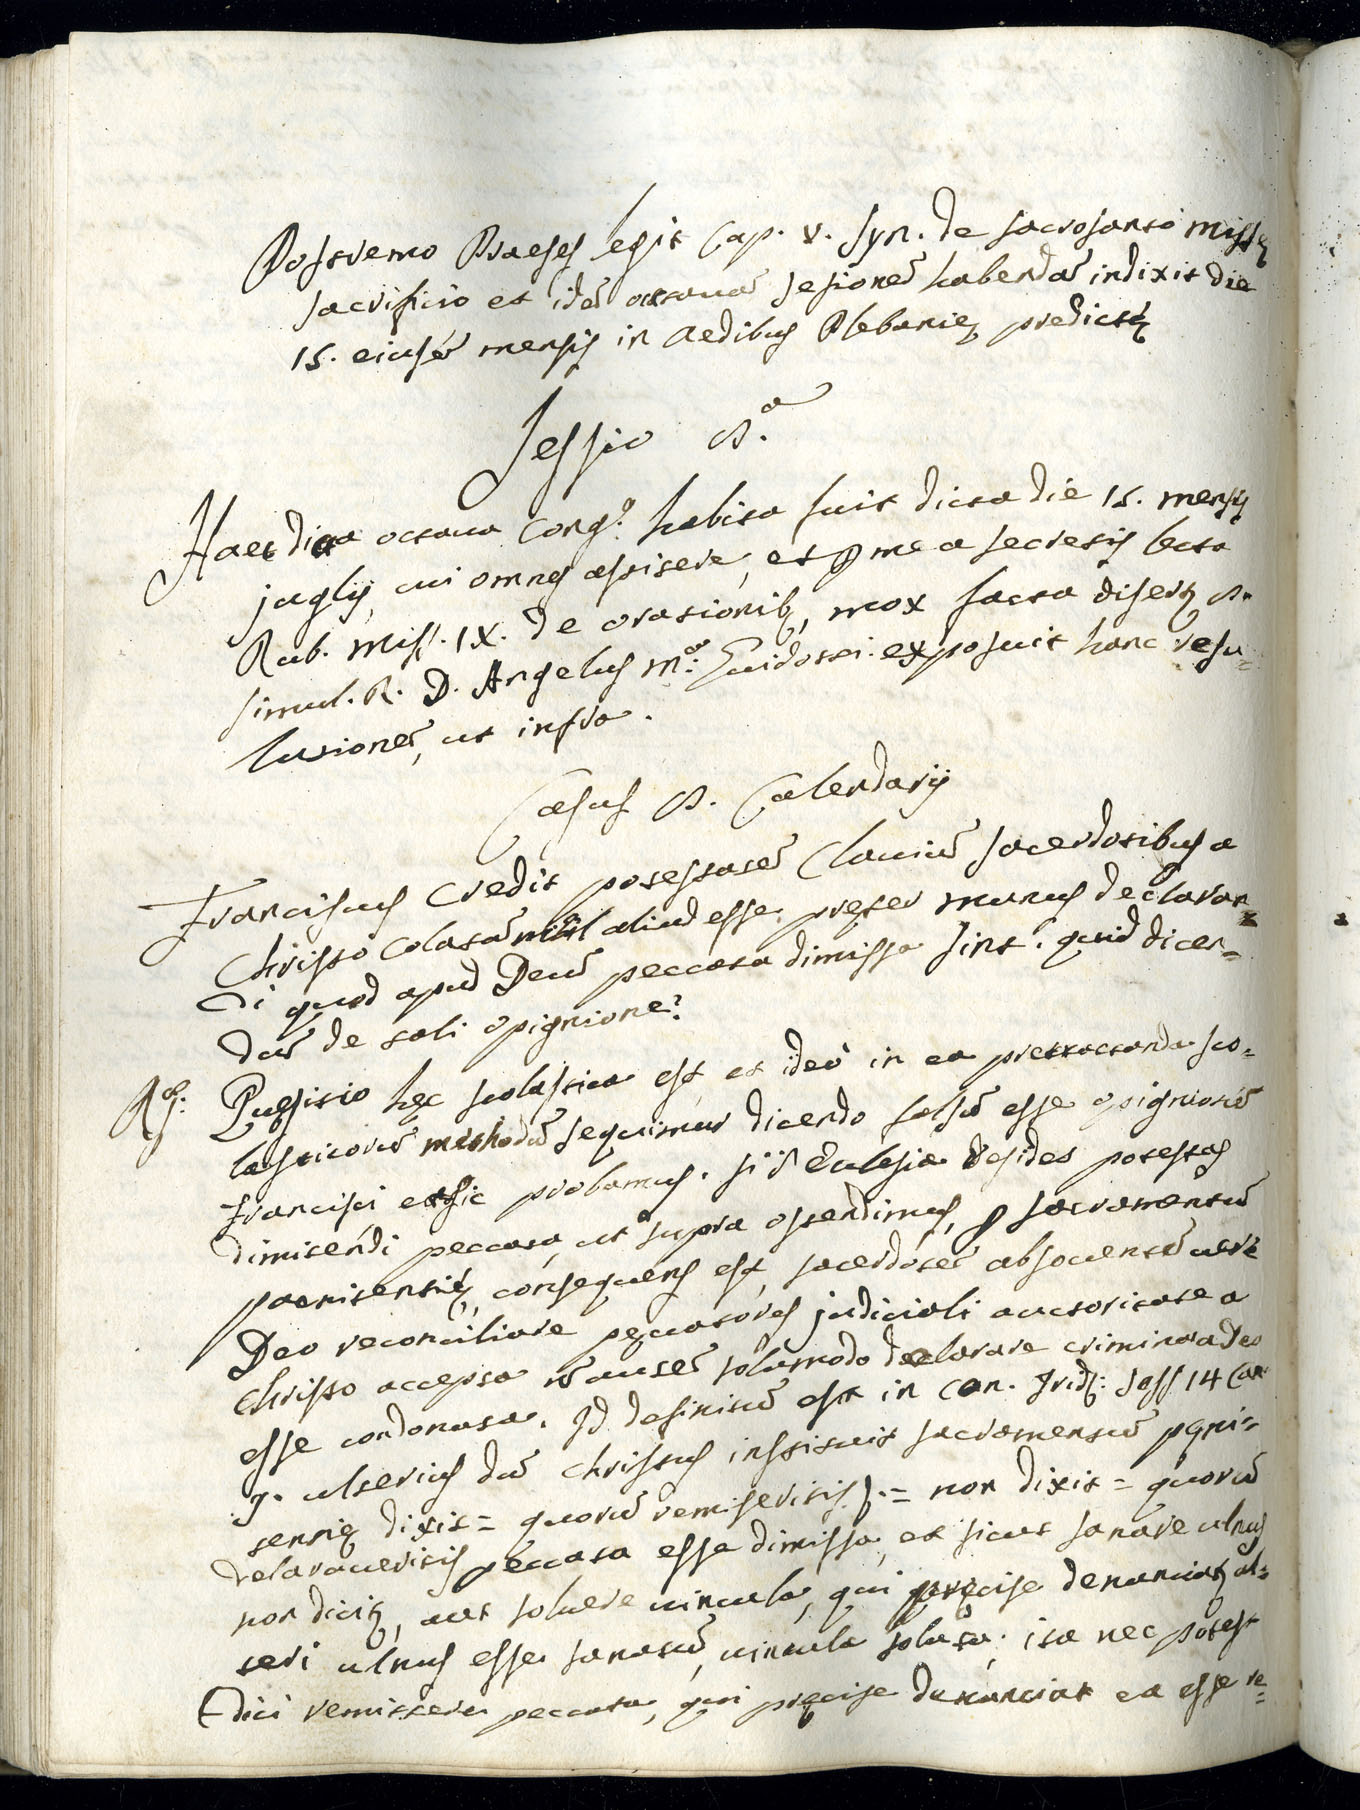 Postremo Praeses legit Cap. V. Syn. de sacrosanto missę
sacrificio et idē octauā sesionē habendā indixit die
15. eiusdē mensis in Aedibus Plebanię predictę
Sessio 8.ª
Haec dicta octaua Cong.º habita fuit dicta die 15. mensis
juglij, cui omnes assistere, et p me a secretis lecta
Rub. Miss. IX. de orationibꝫ, mox facta disertꝫ
simul. R. D. Angelus M.ª Guidotti exposuit hanc resu=
lutionē, ut infra.
Casus 8. Calendarij
Franciscus credit potestatē Clauiū sacerdotibus a
Christo colatā nihil aliud esse, pręter munus declaran
di quod apud Deū peccata dimissa sint. quid dicen=
dū de tali opignione?
Rs: Quęsitio hęc scolastica est et ideo in ea pretractanda sco=
lasticorū methodū sequimur dicendo falsā esse opignionē
Francisci et sic probamus. si ī Eclesia residet potestas
dimitēdi peccata, ut supra ostendimus, p sacramentū
poenitentię, consequens est, sacerdotē absoluentē uere
Deo reconciliare peccatores judiciali auctoritate a
Christo accepta nō autē solumodo declarare crimina a Deo
esse condonata. Id definitū est in Con. Trid: Sess 14 Can
9. ulterius dū Christus instituit sacramentū pęni=
tentię dixit = quorū remiseritis &. = non dixit = quorū
delaraueritis peccata esse dimissa, et sicut sanare ulnus
non dicitꝫ, aut soluere uincula, qui pręcise denunciat al=
teri ulnus esse sanatū, uincula soluta; ita nec potest
dici remittere peccata, qui pręcise denunciat ea esse re=